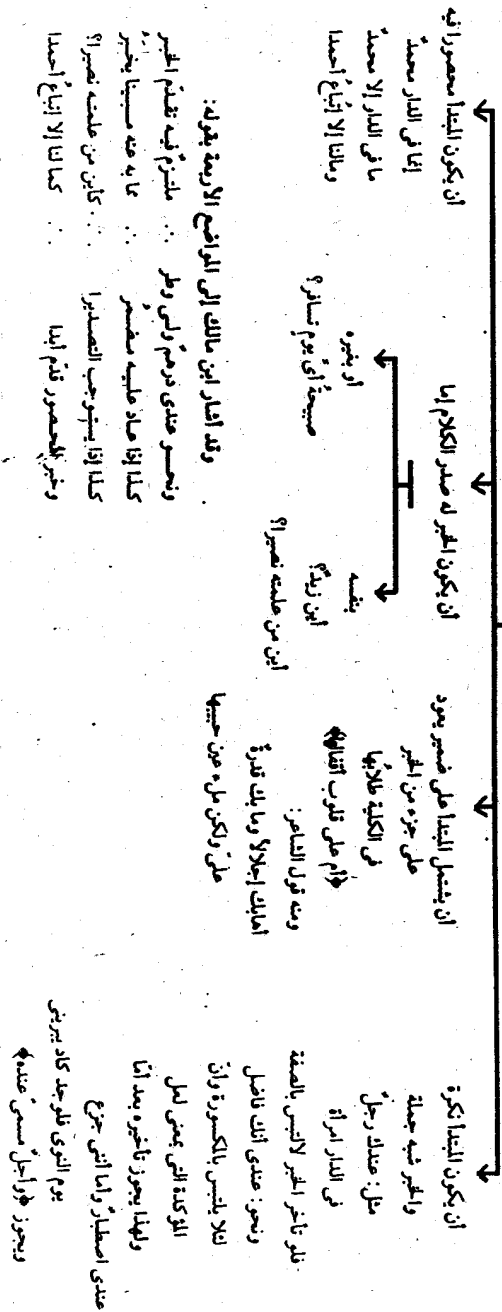 أن يكون المبتدأ نكرة
والخبر شبه جملة
مثل: عندك رجلٌ
في الدار امرأة
فلو تأخر الخبر لالتبس بالصفة
ونحو: عندى أنك فاضل
لئلا يلتبس بالمكسورة وأنّ
المؤكدة التي بمعنى لعل
ولهذا يجوز تأخيره بعد أمّا
عندى اصطبارٌ وأما أننى جزع
يوم النوى فلوجد كاد يبرينى
ويجوز ﴿وأجلٌ مسمىً عنده﴾
أن يشتمل المبتدأ على ضمير يعود
على جزء من الخبر
فى الكلية طلابُها
﴿أم على قلوب أقفالها﴾
ومنه قول الشاعر:
أهابك إجلالاً وما بك قدرةٌ
علىّ ولكن ملء عين حبيبها
أن يكون الخبر له صدر الكلام إما
بنفسه
أين زيدٌ؟
أين من علمته نصيرا؟
أو بغيره
صبيحةُ أىِّ يومٍ تسافر؟
أن يكون المبتدأ محصورا فيه
إنما فى الدار محمدٌ
ما فى الدار إلا محمدٌ
ومالنا إلا إتباعُ أحمدا
وقد أشار ابن مالك إلى المواضع الأربعة بقوله:
ونحــو عندى درهمٌ ولى وطر ∴ ملتــزمٌ فيه تقدّم الخبر
كــذا إذا عـاد عليــه مـضمـرُ ∴ مما به عنه مــبينا يخـبـر
كـذا إذا يستـوجب التصـديرا ∴ كأين من علمته نصيرا؟
وخبر المحصور قدّم أبدا ∴ كما لنا إلا إتباعُ أحمدا